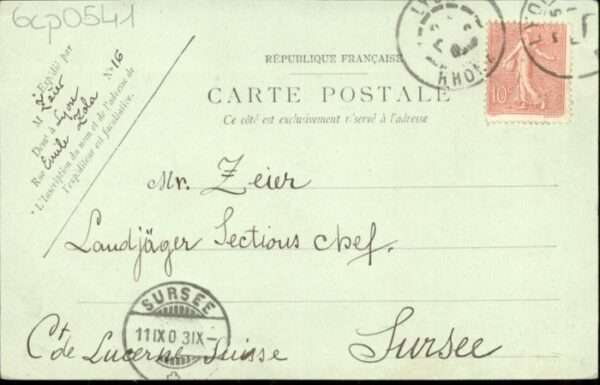 6cp0541
Expédié par
M Zeier
Demt à Lyon
Rue Emile Zola No 16
* L'Inscription du nom et de l'adresse de
l'expéditeur est facultative.
LYON
RHONE
10c
RÉPUBLIQUE FRANÇAISE
CARTE POSTALE
Ce côté est exclusivement réservé à l'adresse
Mr. Zeier
Landjäger Sections chef.
SURSEE
11 IX 03 IX-
Ct de Lucerne Suisse
Sursee